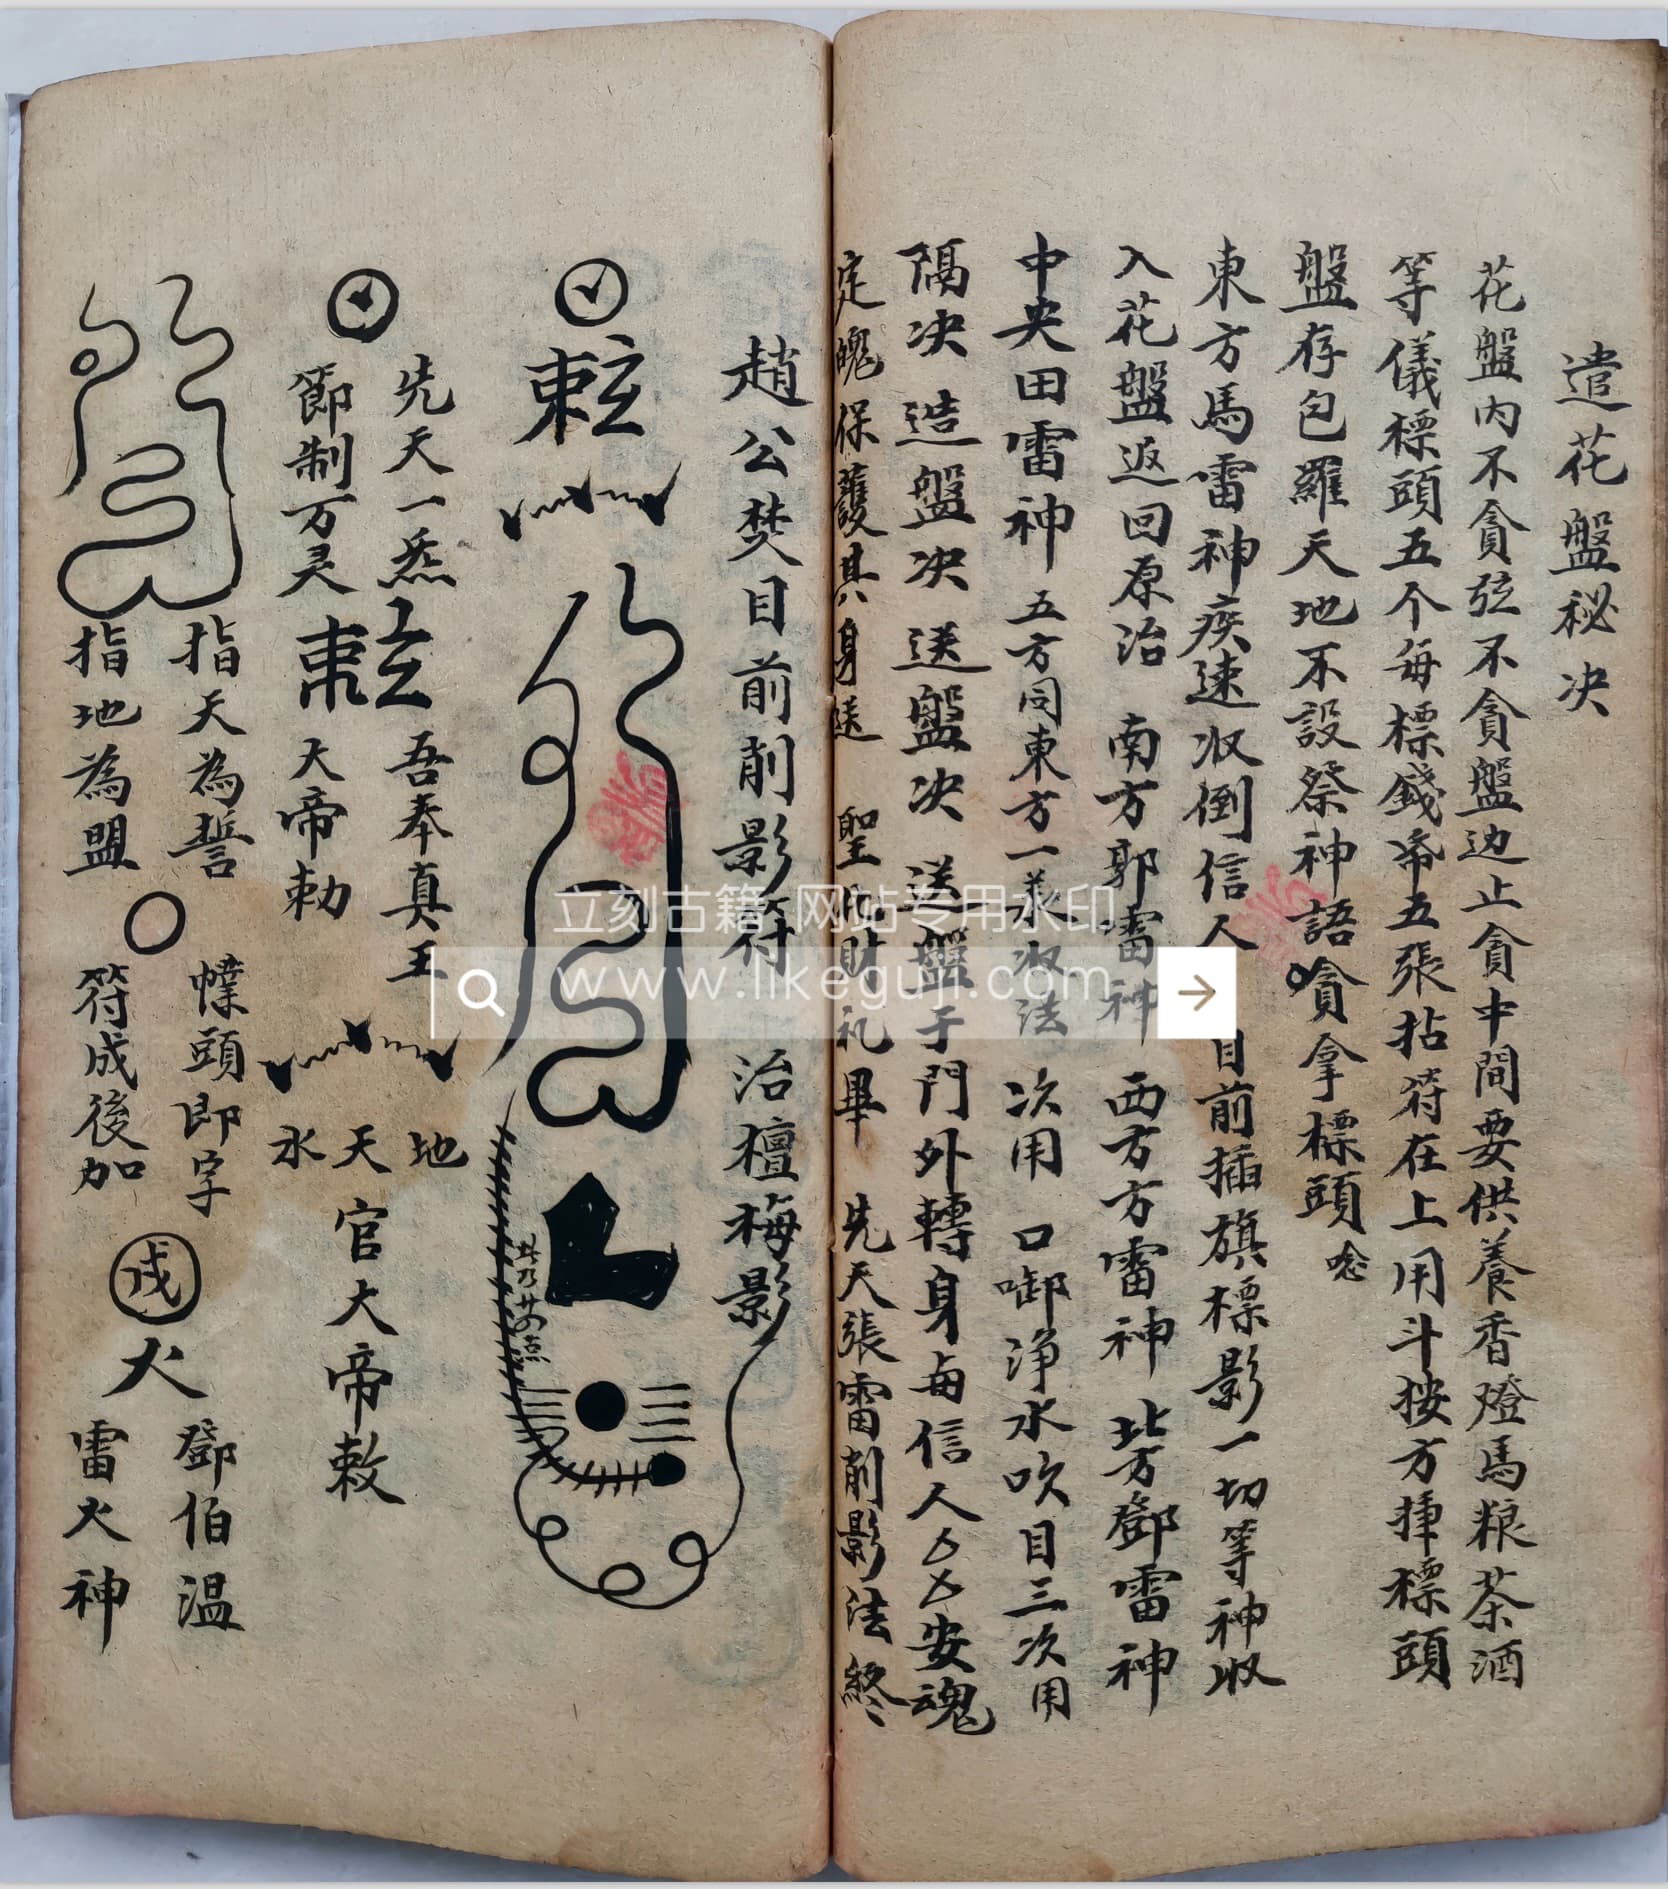 遣花盤秘决
花盤内不貪弦不貪盤边止貪中間要供養香燈馬粮茶酒
等儀標頭五个每標錢帋五張拈符在上用斗按方揷標頭
盤存包羅天地不設祭神語貪拿標頭 唸
東方馬雷神疾速收倒信人 目前插旗標影一切等神收
入花盤返回原治 南方郭雷神 西方方雷神 北方鄧雷神
中央田雷神 五方同東方一義收法 次用 口啣淨水吹目三次用
隔决 造盤决 送盤决 送盤于門外轉身每信人厶厶安魂
定魄保護其身送 聖用財礼畢 先天張雷削影法終
趙公焚目前削影符 治檀梅影
敕
此乃
先天一炁 吾奉真王
節制万灵 大帝勅
地
天官大帝敕
水
指天為誓 幞頭即字
指地為盟 符成後加
戌
火
鄧伯温
雷火神
立刻古籍 网站专用水印
www.likeguji.com